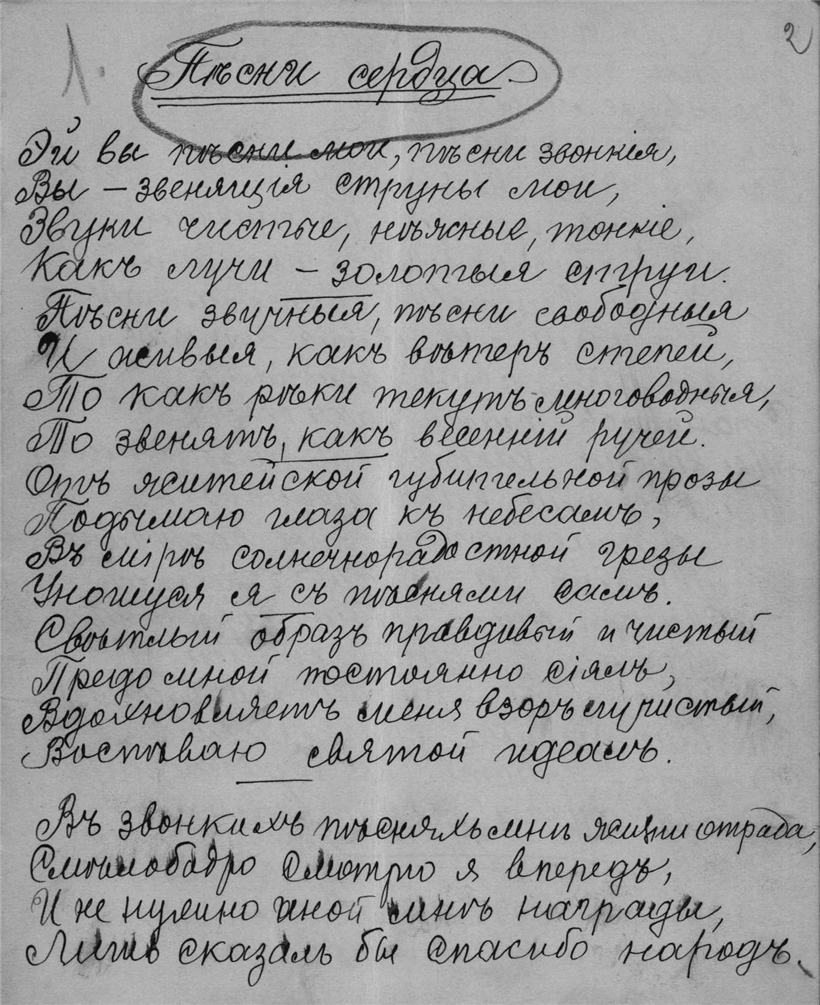 1.
2
Пѣсни сердца
Эй вы пѣсни мои, пѣсни звонкія,
Вы – звенящія струны мои,
Звуки чистые, нѣжные, тонкіе,
Какъ лучи – золотыя струи.
Пѣсни звучныя, пѣсни свободныя
И живыя, какъ вѣтеръ степей,
То какъ рѣки текутъ многоводныя,
То звенятъ, какъ весенній ручей.
Отъ житейской губительной прозы
Подымаю глаза къ небесамъ,
Въ мірѣ солнечнорадостной грезы
Уношуся я съ пѣснями самъ.
Свѣтлый образъ правдивый и чистый
Предо мной постоянно сіялъ,
Вдохновляетъ меня взоръ лучистый,
Воспѣваю святой идеалъ.
Въ звонкихъ пѣсняхъ мнѣ жизни отрада,
Смѣлобадро смотрю я впередъ,
И не нужно иной мнѣ награды,
Лишь сказалъ бы спасибо народъ.